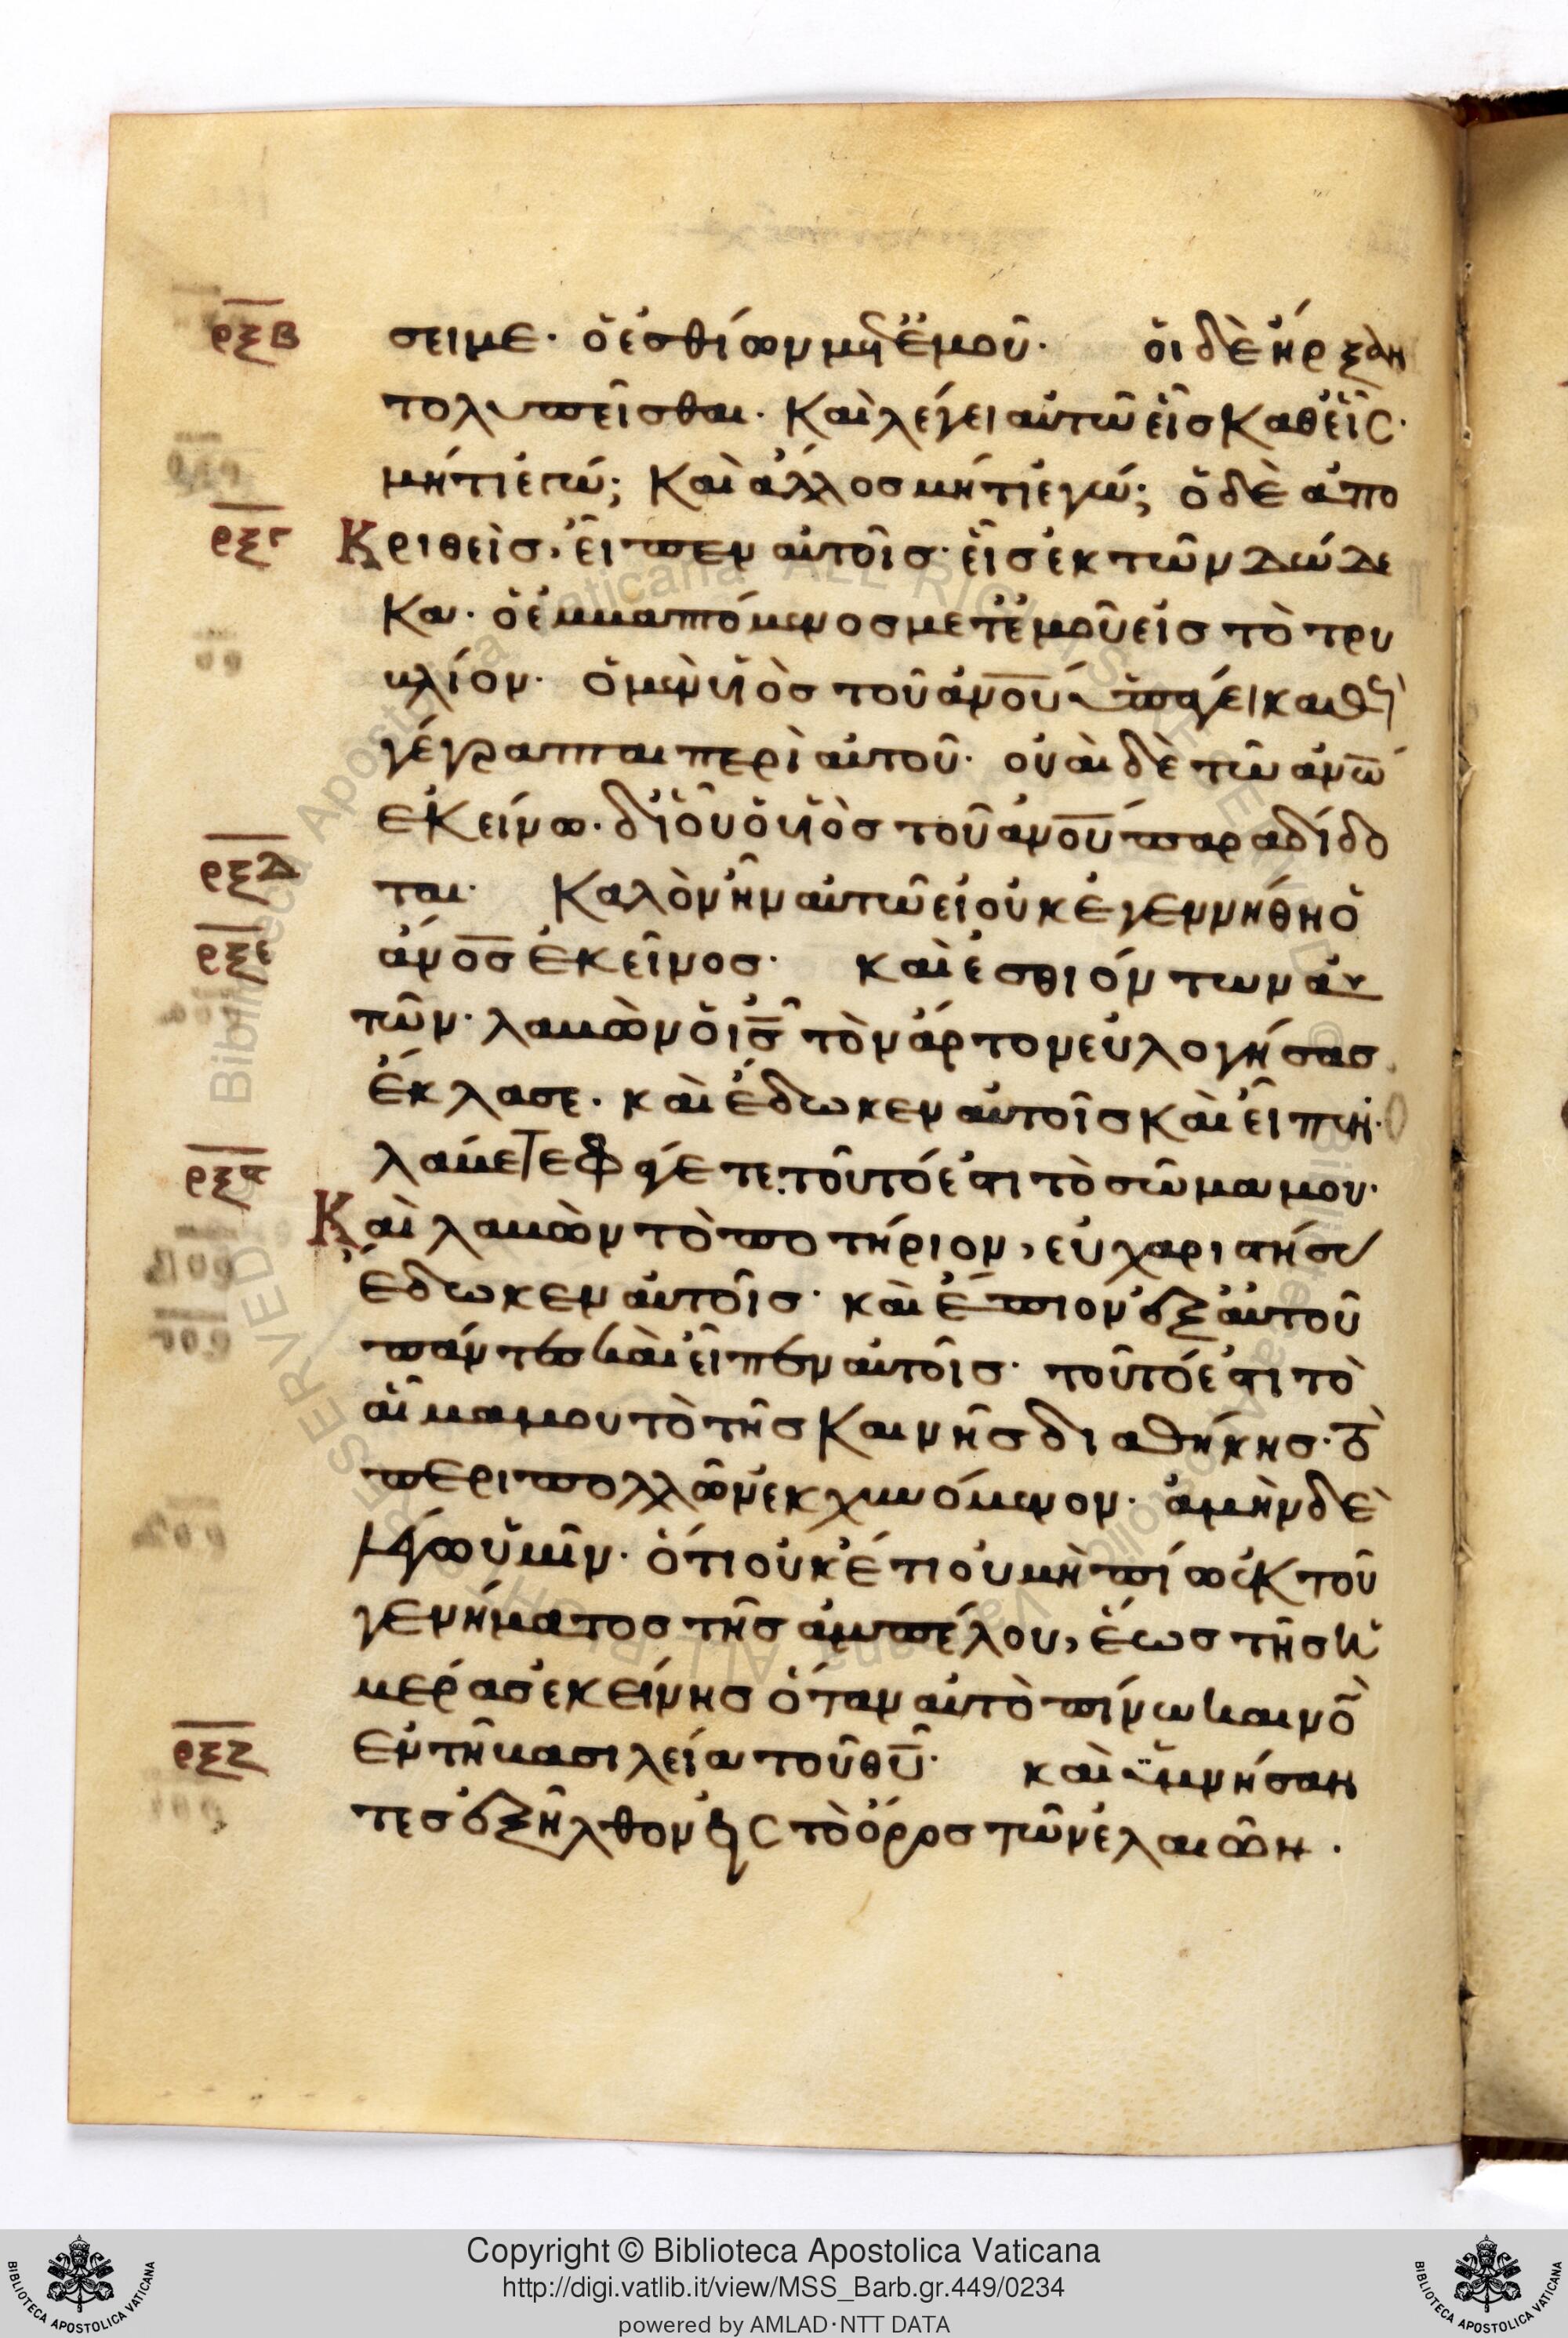 ρξβ σει με· ὁ ἐσθίων μετ' ἐμοῦ· οἱ δὲ ἤρξαν
το λυπεῖσθαι· καὶ λέγει αὐτῶ εἷς καθεῖς·
μήτι ἐγώ; καὶ ἄλλος μήτι ἐγώ; ὁ δὲ ἀπο
ρξγ κριθεὶς, εἶπεν αὐτοῖς· εἷς ἐκ τῶν δώδε
κα· ὁ ἐμβαπτόμενος μετ' ἐμοῦ εἰς τὸ τρυ
βλίον· ὁ μὲν υἱὸς τοῦ ἀνου ὑπάγει καθὼς
γέγραπται περὶ αὐτοῦ· οὐαὶ δὲ τῶ ἀνω
ἐκείνω· δι' οὗ ὁ υἱὸς τοῦ ἀνου παραδίδο
ρξδ ται· καλὸν ἦν αὐτῶ εἰ οὐκ ἐγεννήθη ὁ
ρξε ἀνος ἐκεῖνος· καὶ ἐσθιόντων αὐ
τῶν· λαβὼν ὁ ις τὸν ἄρτον εὐλογήσας
ἔκλασε· καὶ ἔδωκεν αὐτοῖς καὶ εἶπεν·
ρξς λάβετε φάγετε· τοῦτό ἐστι τὸ σῶμα μου·
Καὶ λαβὼν τὸ ποτήριον, εὐχαριστήσας
ἔδωκεν αὐτοῖς· καὶ ἔπιον ἐξ αὐτοῦ
πάντες καὶ εἶπεν αὐτοῖς· τοῦτό ἐστι τὸ
αἷμα μου τὸ τῆς καινῆς διαθήκης· τὸ
περὶ πολλῶν ἐκχυνόμενον· ἀμὴν δὲ
λέγω ὑμῖν· ὅτι οὐκέτι οὐ μὴ πίω ἐκ τοῦ
γενήματος τῆς ἀμπέλου, ἕως τῆς ἡ
μέρας ἐκείνης ὅταν αὐτὸ πίνω καινὸ
ρξζ ἐν τῆ βασιλεία τοῦ θυ· καὶ ὑμνήσαν
τες ἐξῆλθον εἰς τὸ ὄρος τῶν ἐλαιῶν·
Copyright © Biblioteca Apostolica Vaticana
http://digi.vatlib.it/view/MSS_Barb.gr.449/0234
powered by AMLAD·NTT DATA
BIBLIOTECA APOSTOLICA VATICANA
BIBLIOTECA APOSTOLICA VATICANA